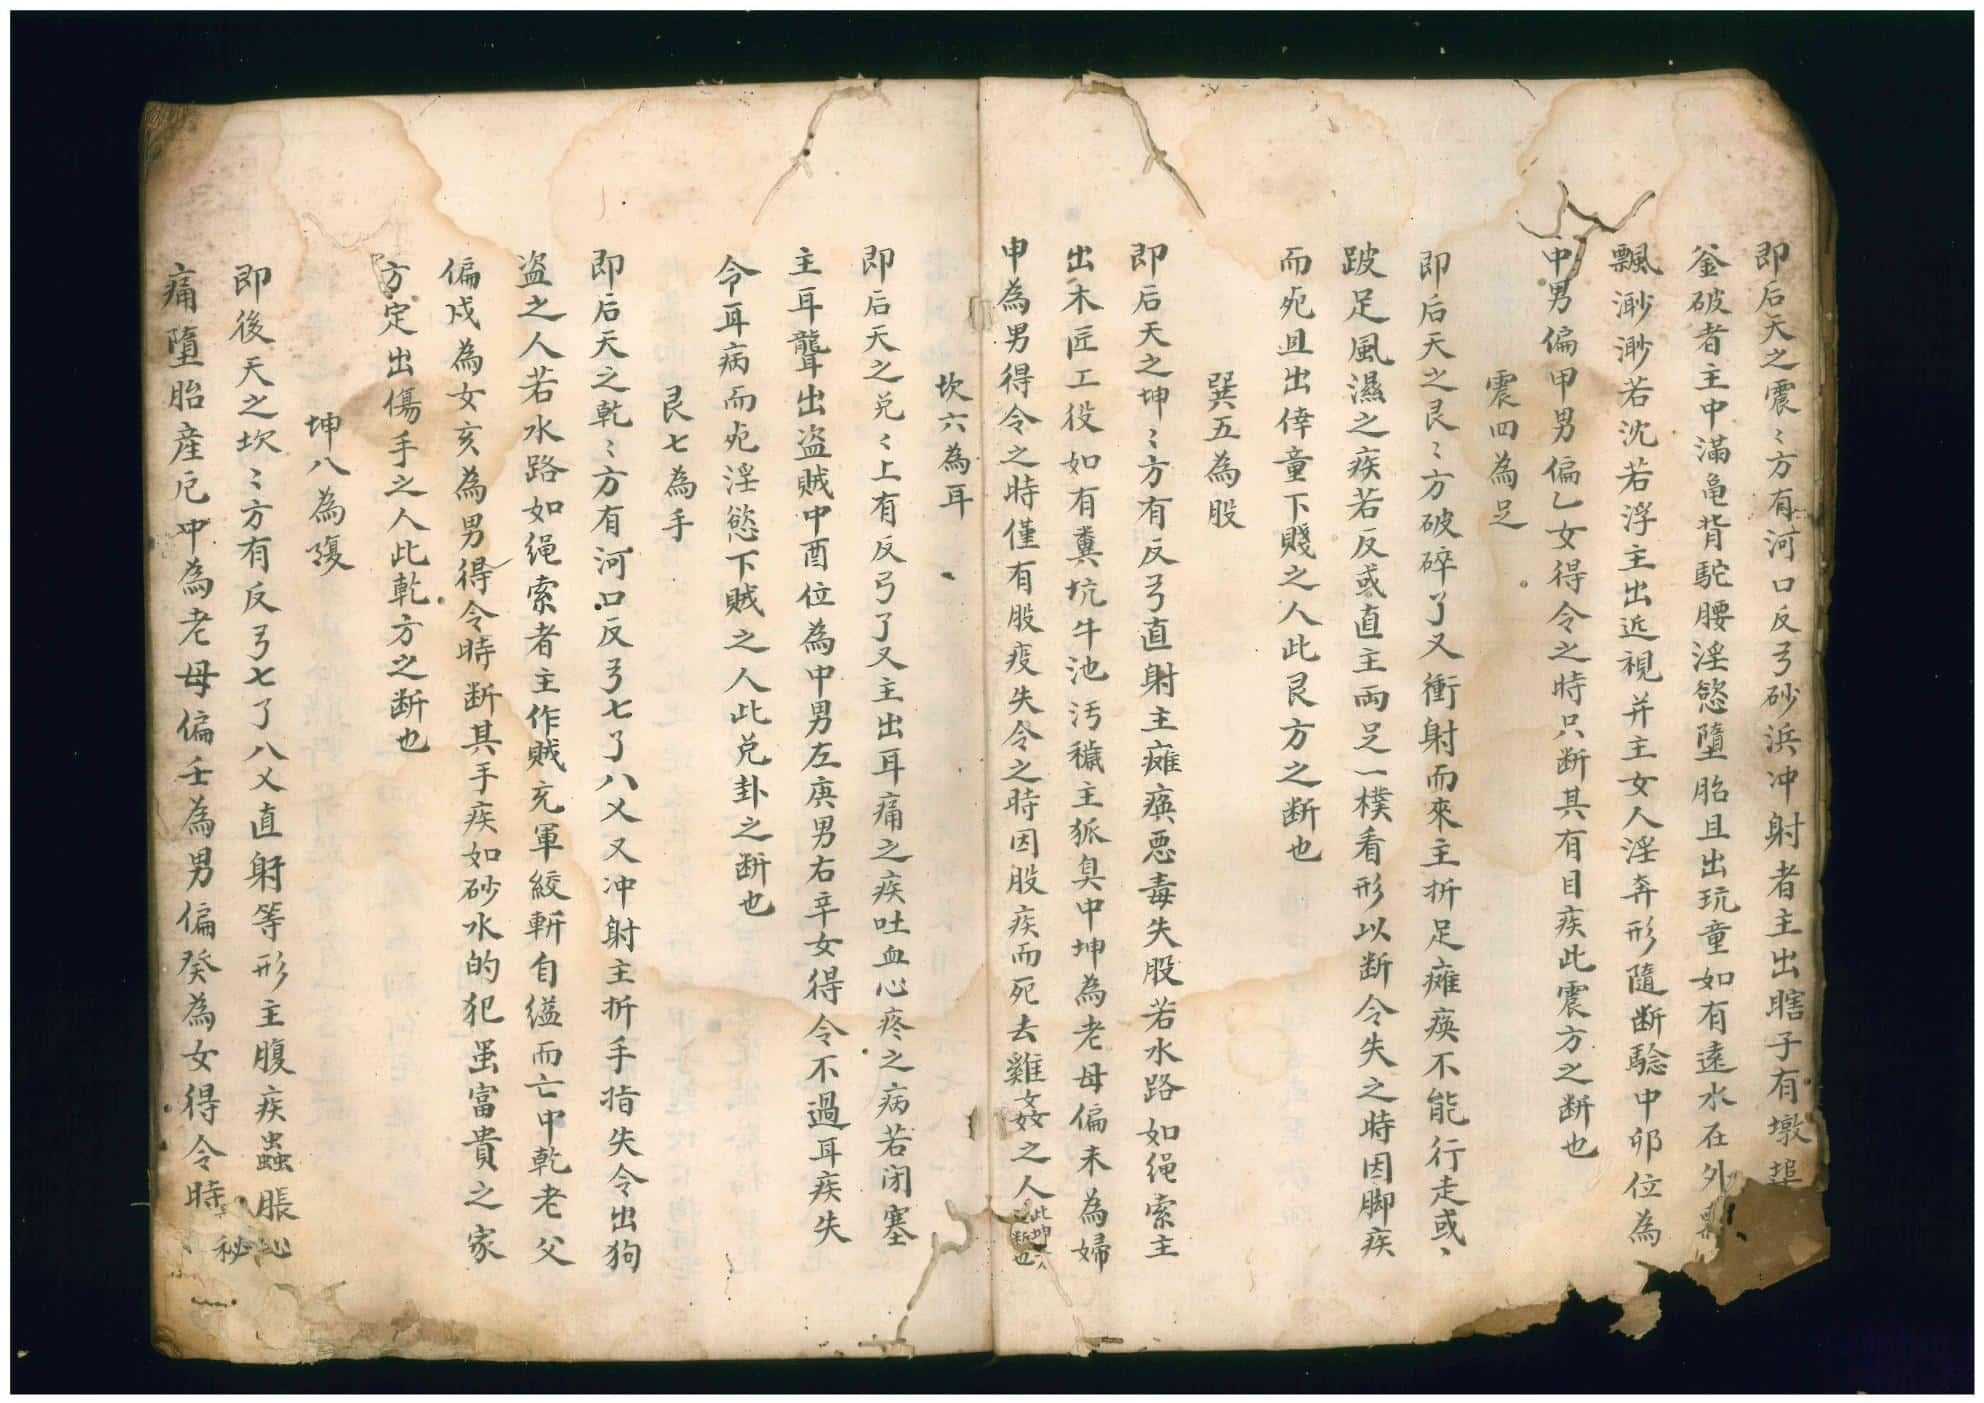 即后天之震〻方有河口反弓砂浜冲射者主出瞎子有墩埠
釜破者主中滿亀背駝腰淫慾墮胎且出玩童如有遠水在外
飄渺渺若沈若浮主出近視并主女人淫奔形隨断驗中卯位為
中男偏甲男偏乙女得令之時只断其有目疾此震方之断也
震四為足
即后天之艮〻方破碎丫叉衝射而來主折足癱瘓不能行走或、
跛足風濕之疾若反或直主両足一樸看形以断令失之時因脚疾
而死且出倖童下賤之人此艮方之断也
巽五為股
即后天之坤〻方有反弓直射主癱瘓悪毒失股若水路如绳索主
出木匠工役如有糞坑牛池汚穢主狐臭中坤為老母偏未為婦
申為男得令之時僅有股疫失令之時因股疾而死去雞姦之人此坤之断也
坎六為耳
即后天之兑〻上有反弓丫叉主出耳痛之疾吐血心疼之病若闭塞
主耳聾出盗賊中酉位為中男左庚男右辛女得令不過耳疾失
令耳病而死淫慾下贱之人此兑卦之断也
艮七為手
即后天之乾〻方有河口反弓七丫八乂又冲射主折手指失令出狗
盗之人若水路如绳索者主作贼充軍絞斬自缢而亡中乾老父
偏戌為女亥為男得令時断其手疾如砂水的犯虽富貴之家
方定出傷手之人此乾方之断也
坤八為腹
即後天之坎〻方有反弓七丫八乂直射等形主腹疾蟲脹心
痛墮胎産厄中為老母偏壬為男偏癸為女得令時秘